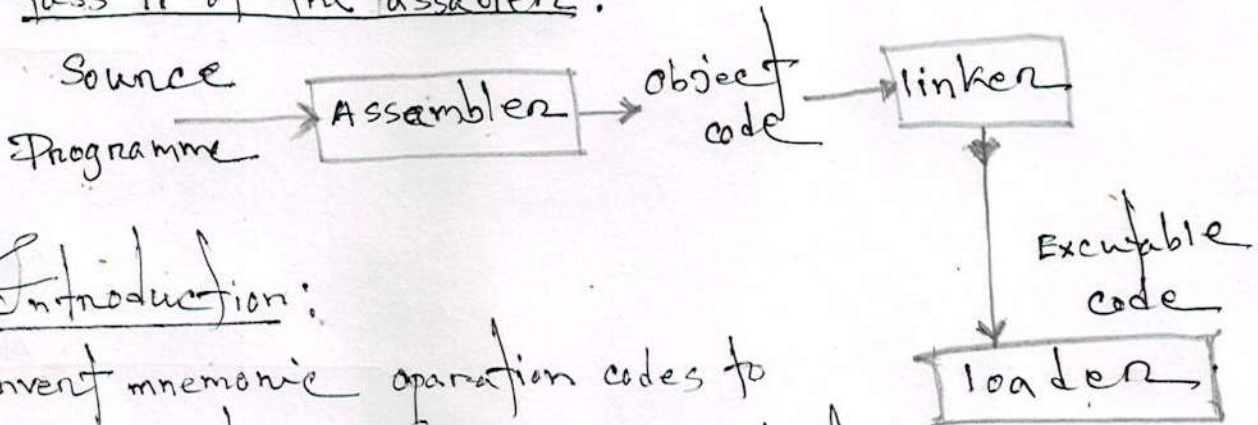 Pass II of the assabler.
Source
Programme
Assembler
Object
code
linker
Excutable
code
loader
Introduction:
nvert mnemonic oparation codes to